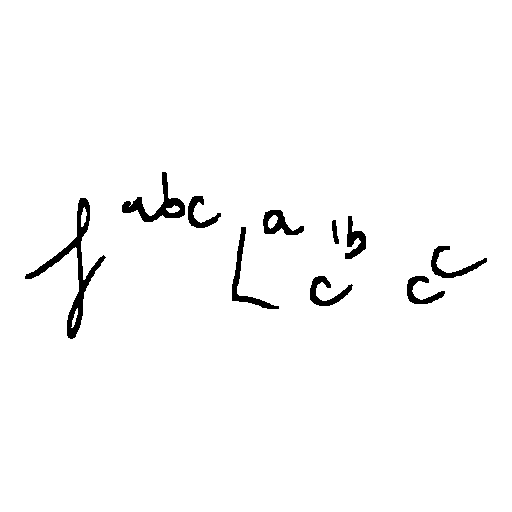 f^{abc} L^{a} c'^{b} c^{c}